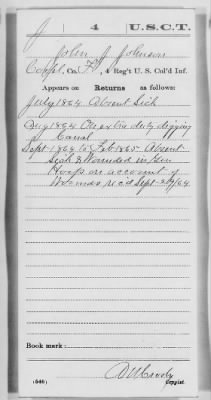 J 4 U.S.C.T.
John J. Johnson
Corpl, Co. F, 4 Reg't U. S. Col'd Inf.
Appears on Returns as follows:
July 1864 Absent Sick
Aug 1864 On extra duty digging
Canal
Sept 1864 to Feb 1865 Absent
Sick & Wounded in Gen
Hosp on account of
Wounds rec'd Sept 29/64
Book mark:
(546) Copyist.